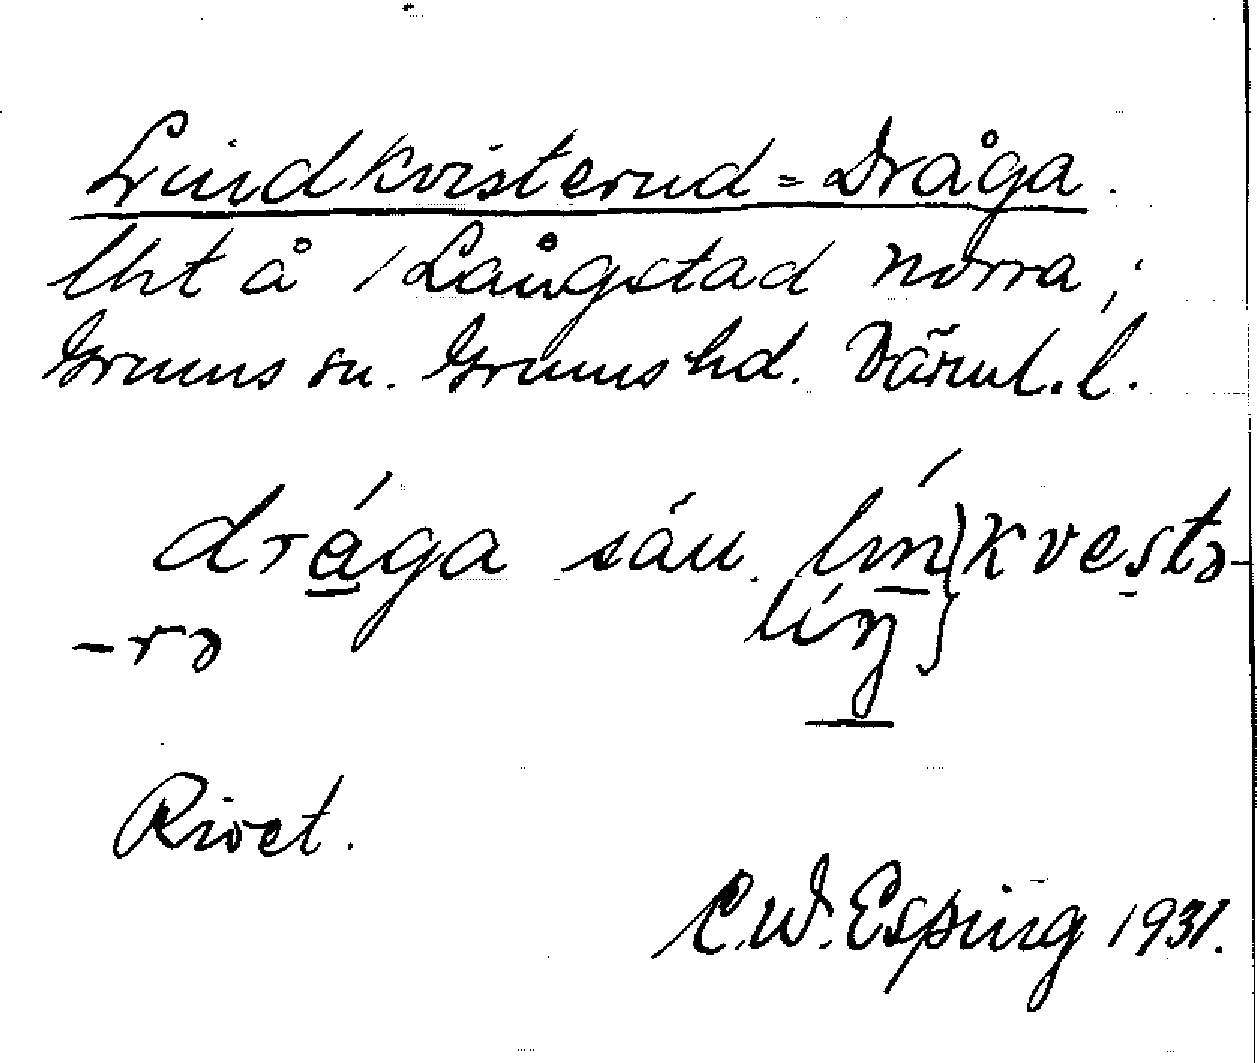 Lindkvisterud = Dråga.
lht å 1 Långstad norra;
Grums sn. Grums hd. Värml. l.
drága sáu. lin } kvestə-
liŋ }
-rə
Rivet.
C.W. Esping 1931.